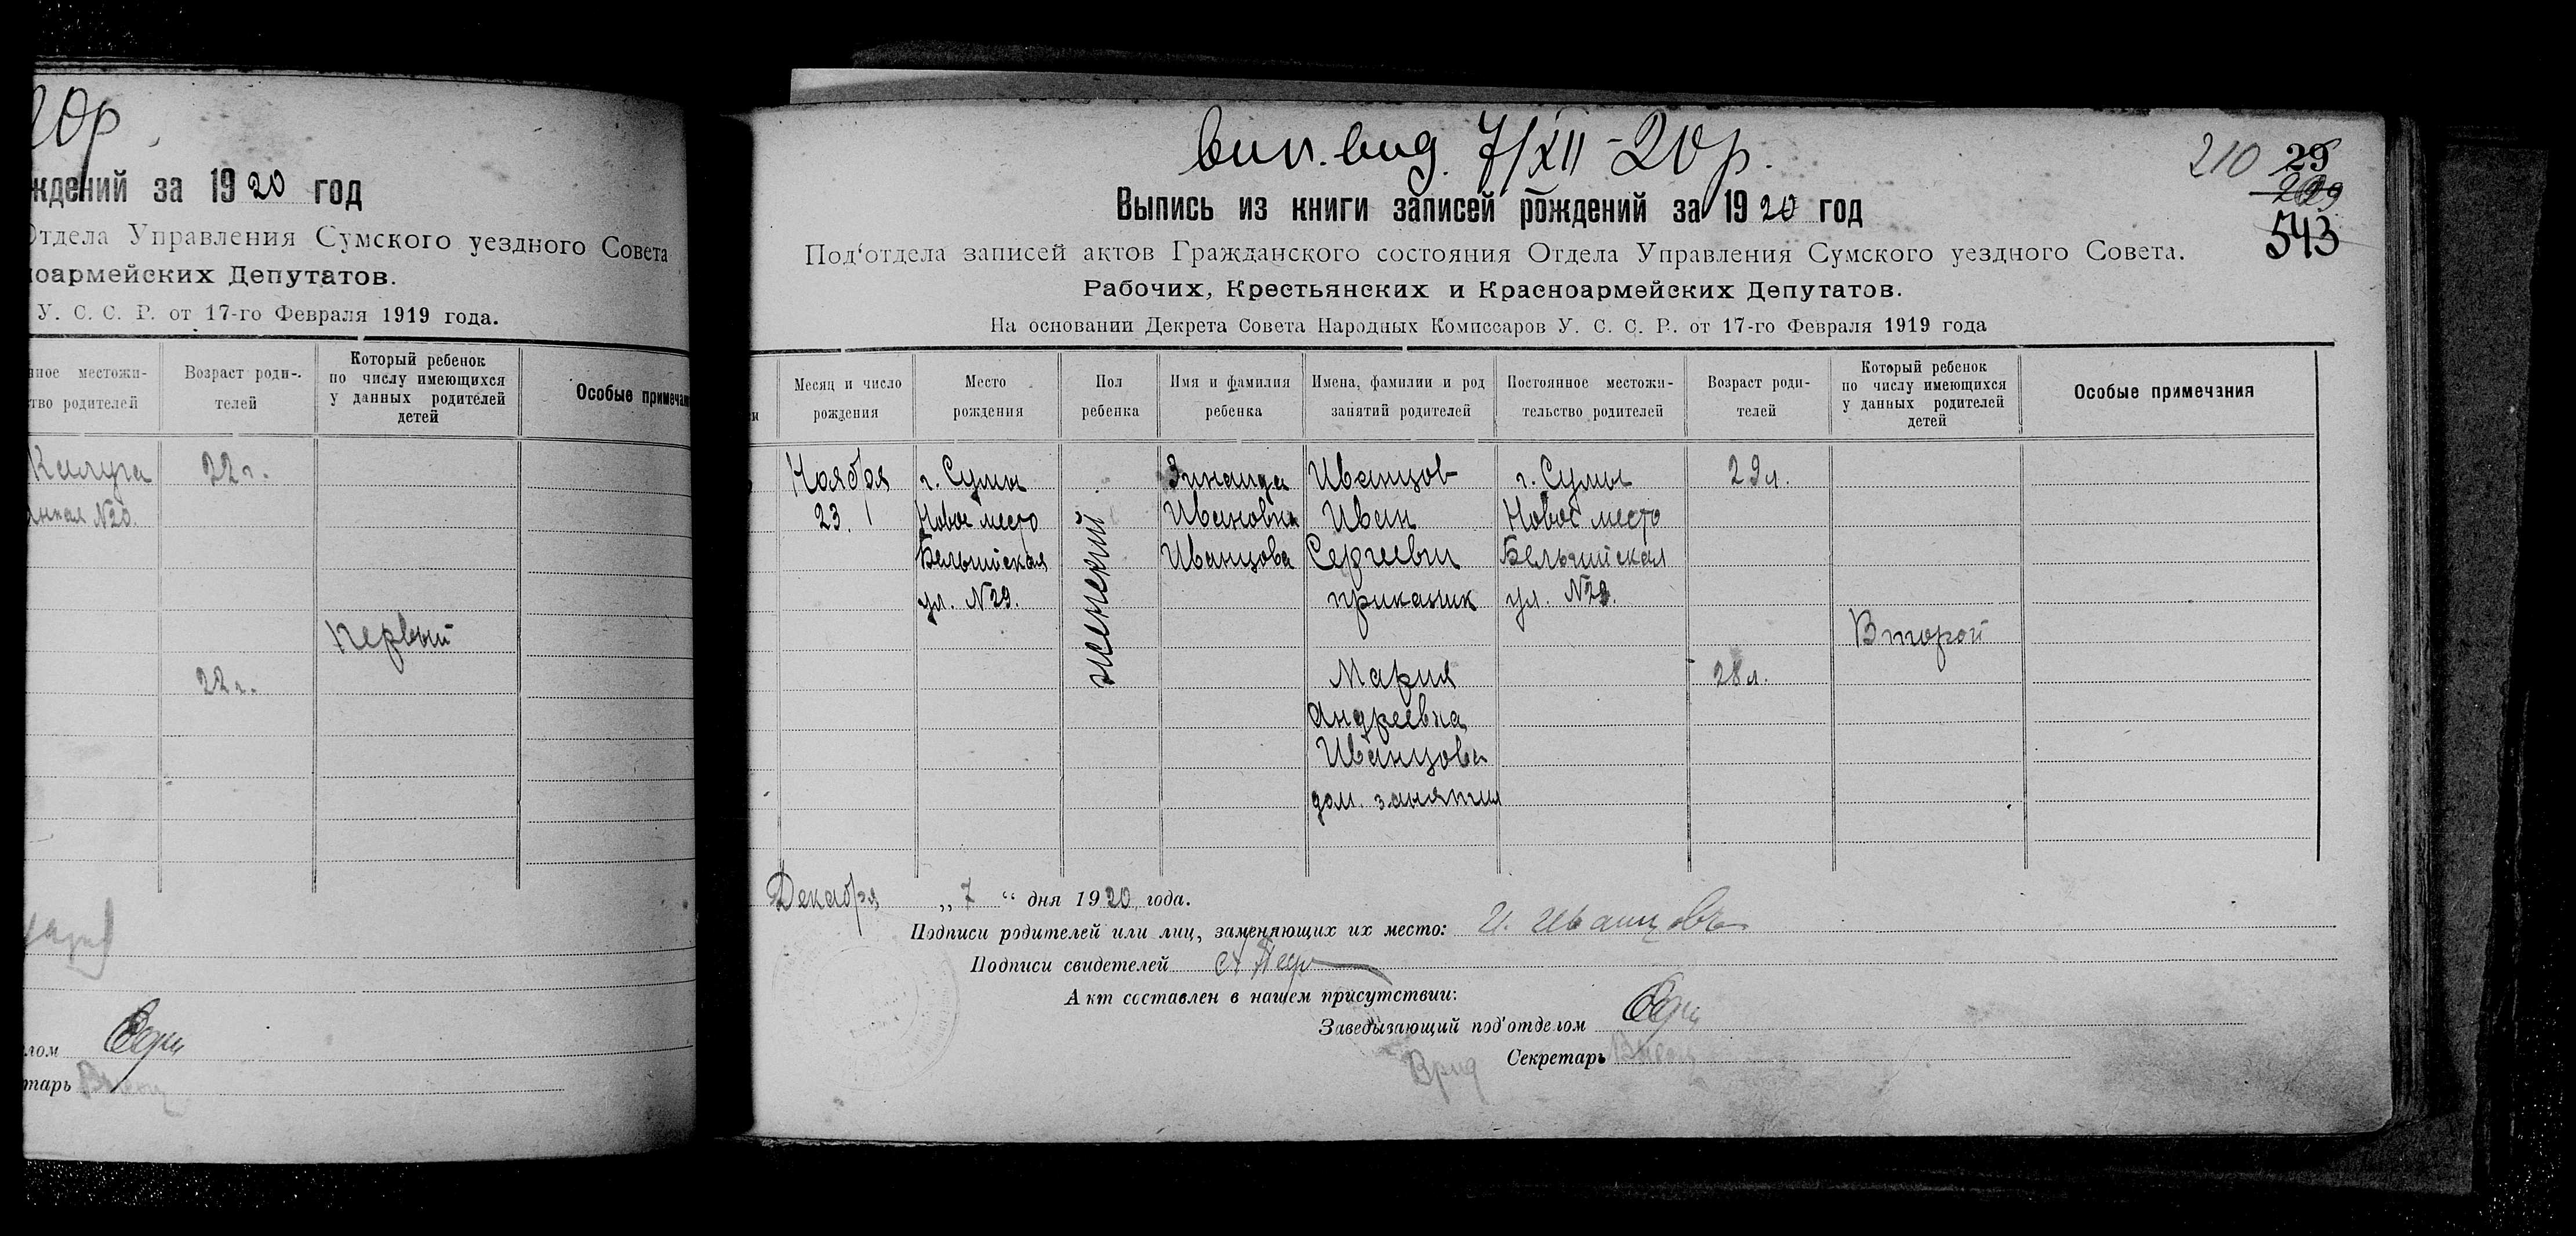 20р
ждений за 1920 год
Отдела Управления Сумского уездного Совета
ноармейских Депутатов.
У. С. С. Р. от 17-го Февраля 1919 года.
нное местожи-
тво родителей
Возраст роди-
телей
Который ребенок
по числу имеющихся
у данных родителей
детей
Особые примечан
Калуга
22 г.
нная №20.
Первый
22 г.
лом
тарь
вип. вид. 7/XII-20 р.
210 29
209
543
Выпись из книги записей рождений за 1920 год
Под'отдела записей актов Гражданского состояния Отдела Управления Сумского уездного Совета.
Рабочих, Крестьянских и Красноармейских Депутатов.
На основании Декрета Совета Народных Комиссаров У. С. С. Р. от 17-го Февраля 1919 года
Месяц и число
рождения
Место
рождения
Пол
ребенка
Имя и фамилия
ребенка
Имена, фамилии и род
занятий родителей
Постоянное местожи-
тельство родителей
Возраст роди-
телей
Который ребенок
по числу имеющихся
у данных родителей
детей
Особые примечания
Ноября
23.
г. Сумы
Новое место
Бельгийская
ул. №29.
женский
Зинаида
Ивановна
Иванцова
Иванцов
Иван
Сергеевич
приказчик
Мария
Андреевна
Иванцова
дом. занятия
г. Сумы
Новое место
Бельгийская
ул. №29.
29 л.
28 л.
Второй
Декабря „ 7 “ дня 1920 года.
Подписи родителей или лиц, заменяющих их место: И. Иванцовъ
Подписи свидетелей
Акт составлен в нашем присутствии:
Заведывающий под'отделом
Врид Секретарь